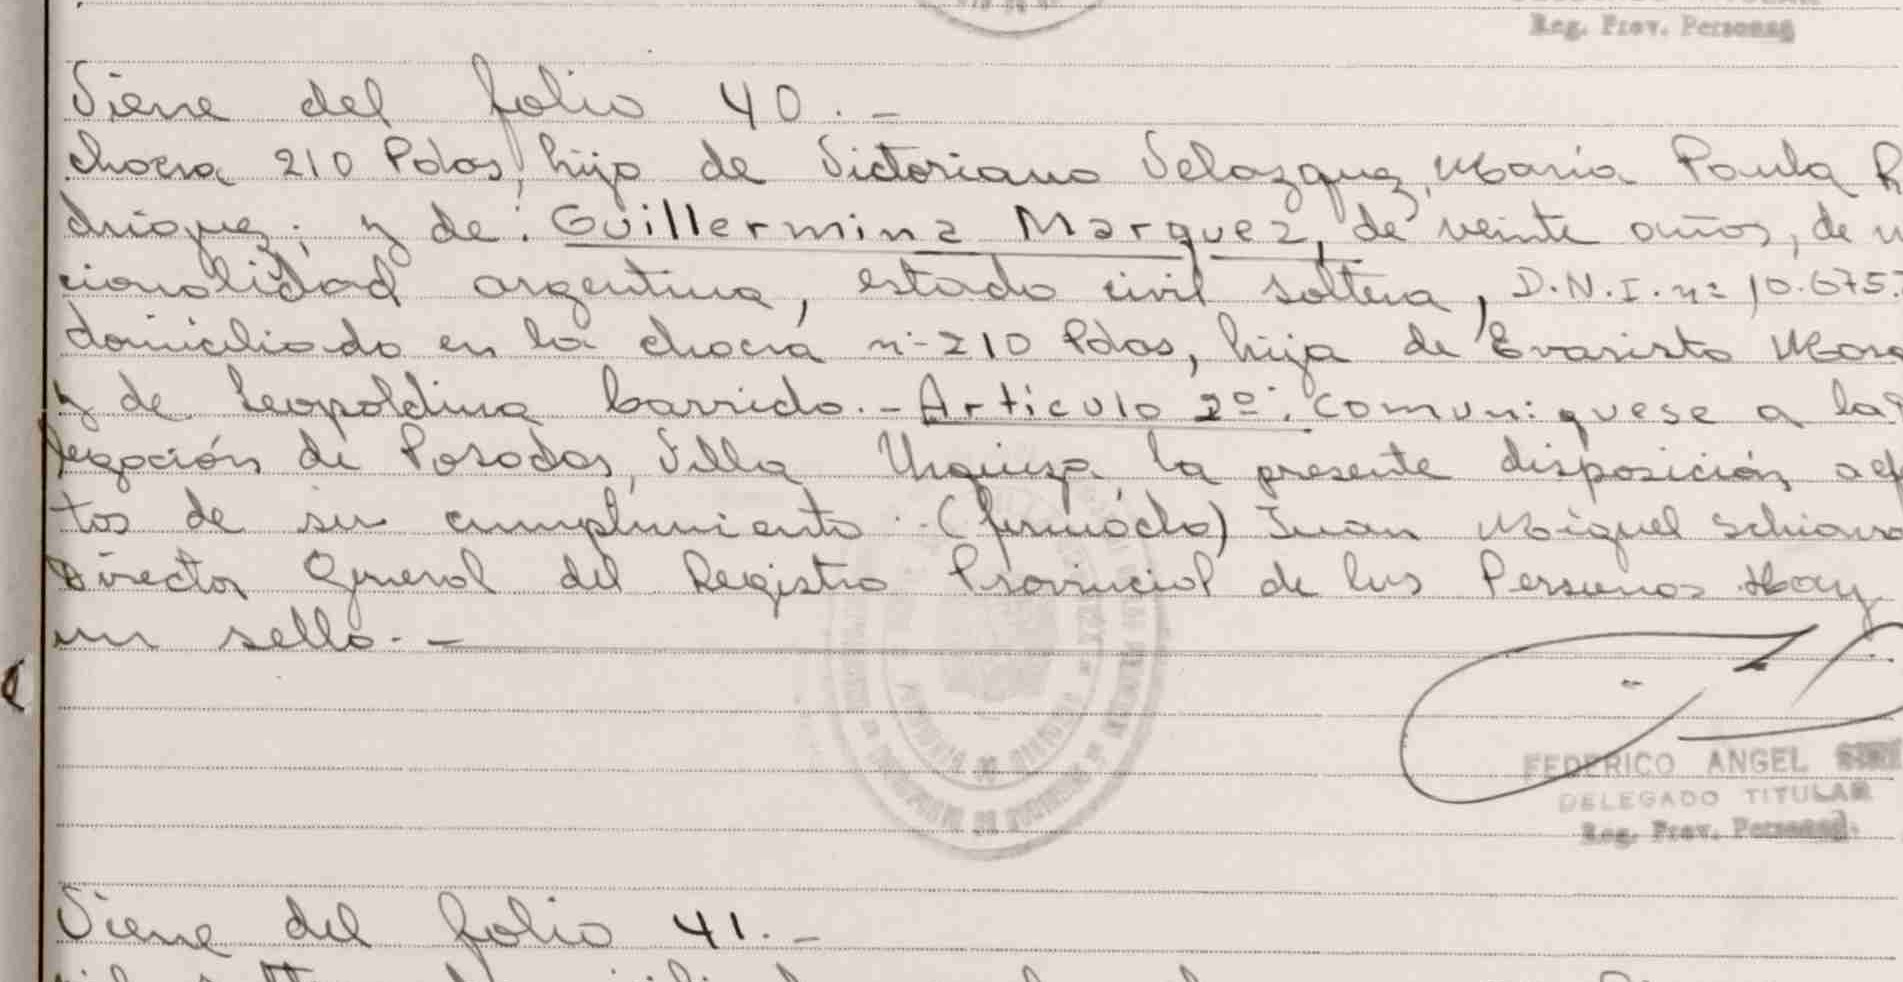 Reg. Prov. Personas
Viene del folio 40.-
chacra 210 Pdas, hijo de Victoriano Velazquez, María Paula R
driguez; y de: Guillermina Marquez, de veinte años, de n
cionalidad argentina, estado civil soltera, D.N.I. nº 10.675.
domiciliado en la chacra nº 210 Pdas, hija de Evaristo Marq
y de Leopoldina Barrido.- Articulo 2º: Comuníquese a la
legación de Posadas, Villa Urquiza, la presente disposición a ef
tos de su cumplimiento.- (firmado) Juan Miguel Schiavo
Director General del Registro Provincial de las Personas Hay
un sello.-
FEDERICO ANGEL
DELEGADO TITULAR
Reg. Prov. Personas
Viene del folio 41.-